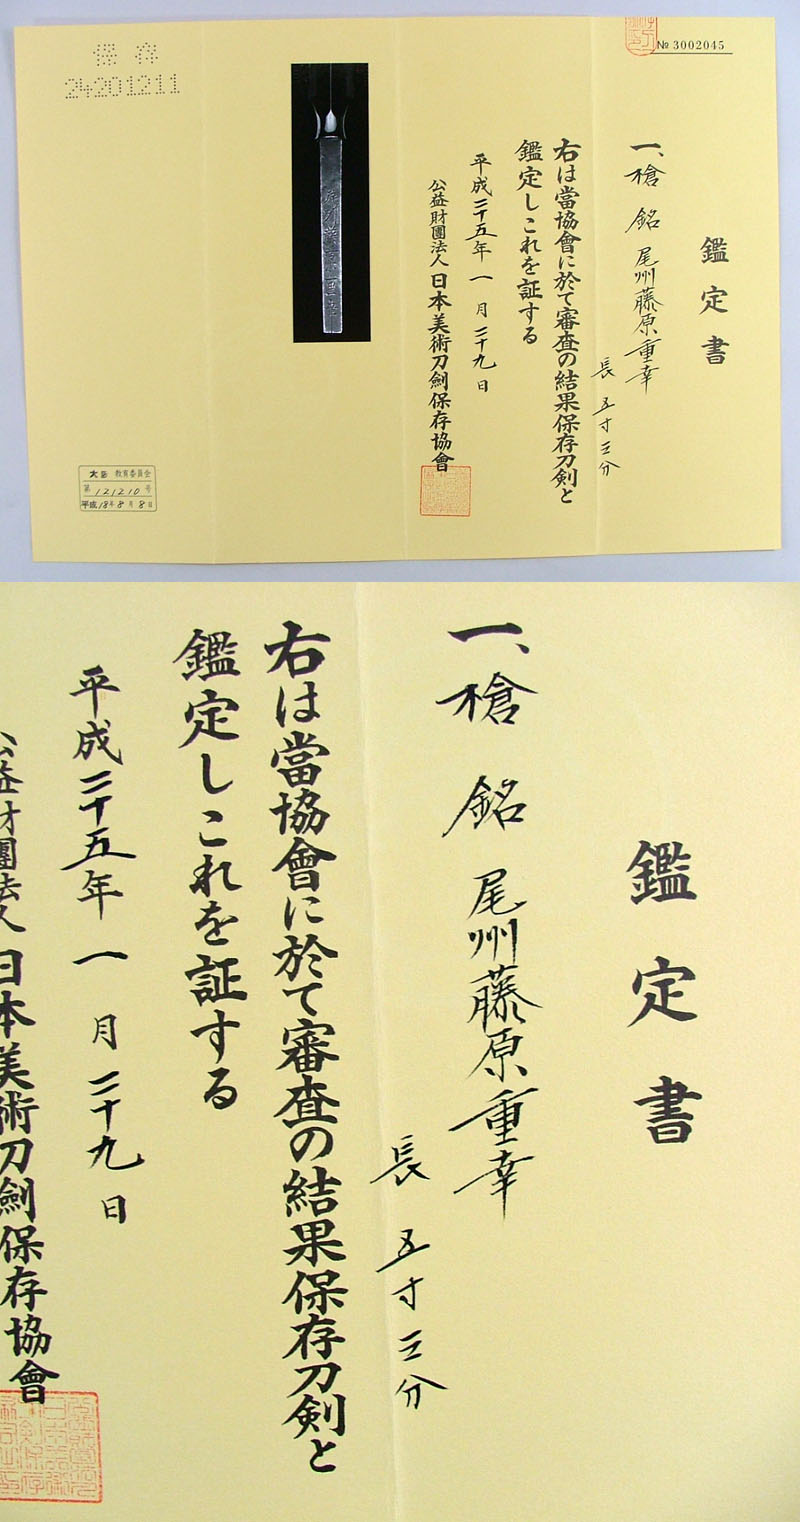 № 3002045
鑑定書
一、槍 銘 尾州藤原重幸
長 五寸三分
右は當協會に於て審査の結果保存刀剣と
鑑定しこれを証する
平成二十五年 一月 二十九日
公益財團法人 日本美術刀劍保存協會
保存
24201211
大阪 教育委員会
第 121210 号
平成 18年 8月 8日
鑑定書
一、槍 銘 尾州藤原重幸
長 五寸三分
右は當協會に於て審査の結果保存刀剣と
鑑定しこれを証する
平成二十五年 一月 二十九日
公益財團法人 日本美術刀劍保存協會